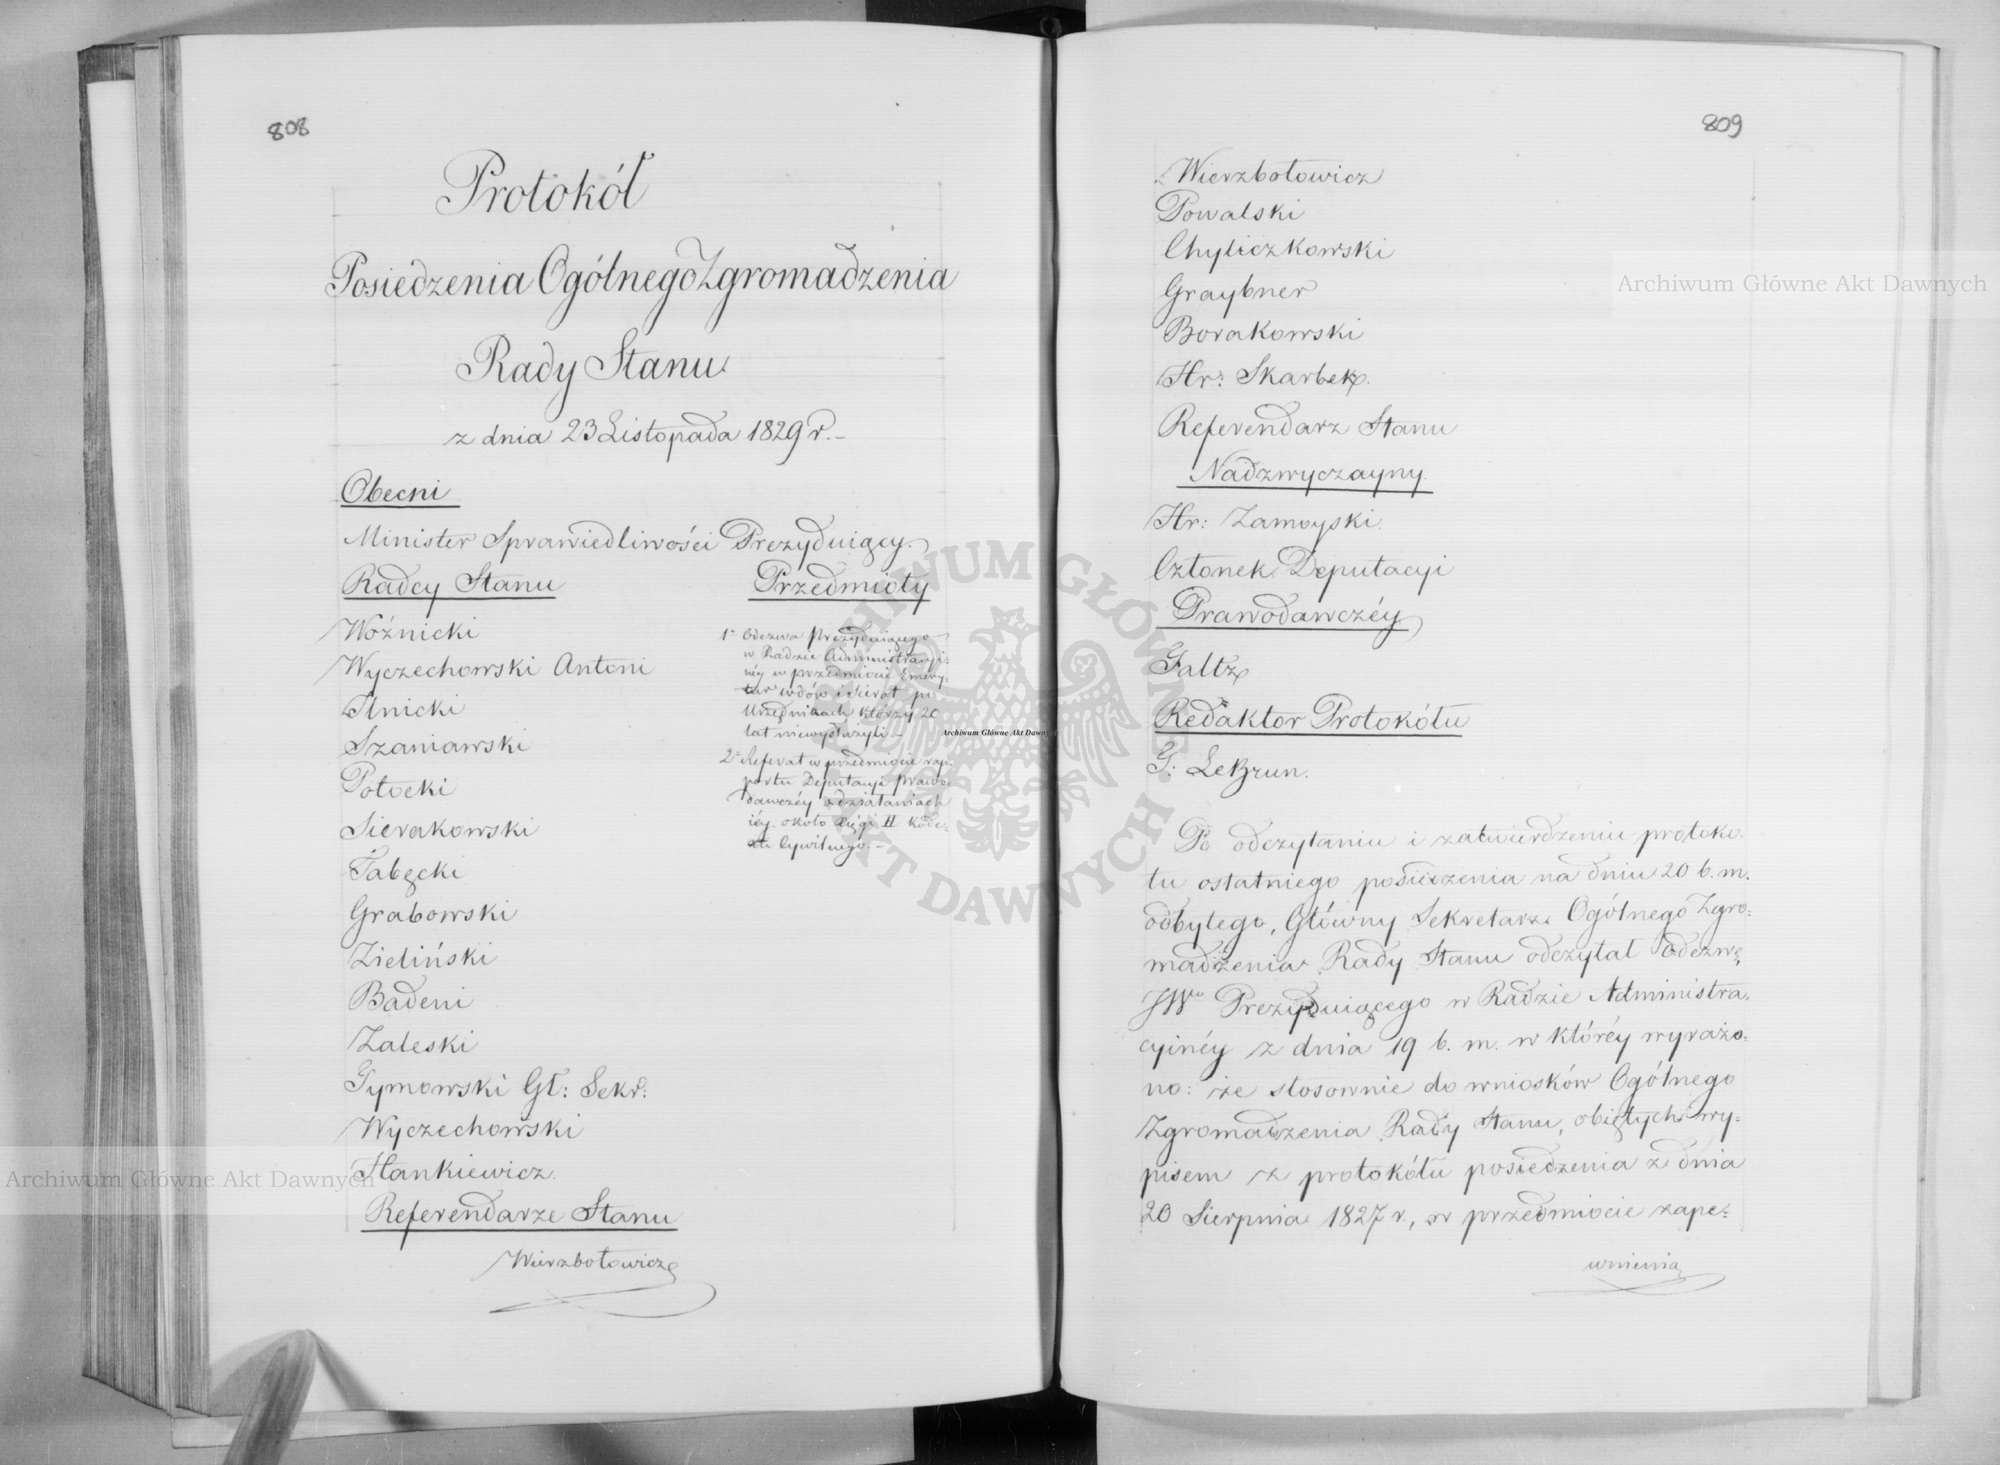 808
Protokół
Posiedzenia Ogólnego Zgromadzenia
Rady Stanu
z dnia 23 Listopada 1829 r.-
Obecni
Minister Sprawiedliwości Prezyduiący.
Radcy Stanu
Woźnicki
Wyczechowski Antoni
Ilnicki
Szaniawski
Potocki
Sierakowski
Tabęcki
Grabowski
Zieliński
Badeni
Zaleski
Tymowski Gł: Sekr:
Wyczechowski
Hankiewicz.
Referendarze Stanu
Wierzbołowicz
Przedmioty
1- Odezwa Prezyduiącego
w Radzie Administracyi-
néy w przedmiocie Emery-
tur wdów i sierot po
Urzędnikach którzy 20
lat niewysłużyli.-
2- Referat w przedmiocie rap-
portu Deputacyi Prawo-
dawczéy o działaniach
iéy około Xięgi II Kode-
xu Cywilnego.-
809
Wierzbołowicz
Powalski
Chyliczkowski
Graybner
Borakowski
Hr: Skarbek.
Referendarz Stanu
Nadzwyczayny.
Hr: Zamoyski.
Członek Deputacyi
Prawodawczéy
Faltz
Redaktor Protokółu
G: LeBrun.
Po odczytaniu i zatwierdzeniu protoko-
łu ostatniego posiedzenia na dniu 20 b. m.
odbytego, Główny Sekretarz Ogólnego Zgro-
madzenia Rady Stanu odczytał Odezwę
JWo Prezyduiącego w Radzie Administra-
cyinéy z dnia 19 b. m. w któréy wyrażo-
no: że stosownie do wniosków Ogólnego
Zgromadzenia Rady Stanu, obiętych wy-
pisem z protokółu posiedzenia z dnia
20 Sierpnia 1827 r., w przedmiocie zape-
wnienia
Archiwum Główne Akt Dawnych
Archiwum Główne Akt Dawnych
Archiwum Główne Akt Dawnych
ARCHIWUM GŁÓWNE AKT DAWNYCH